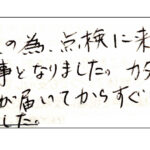 の為、点検に来
事となりました。カタ
が届いてからすぐ
した。